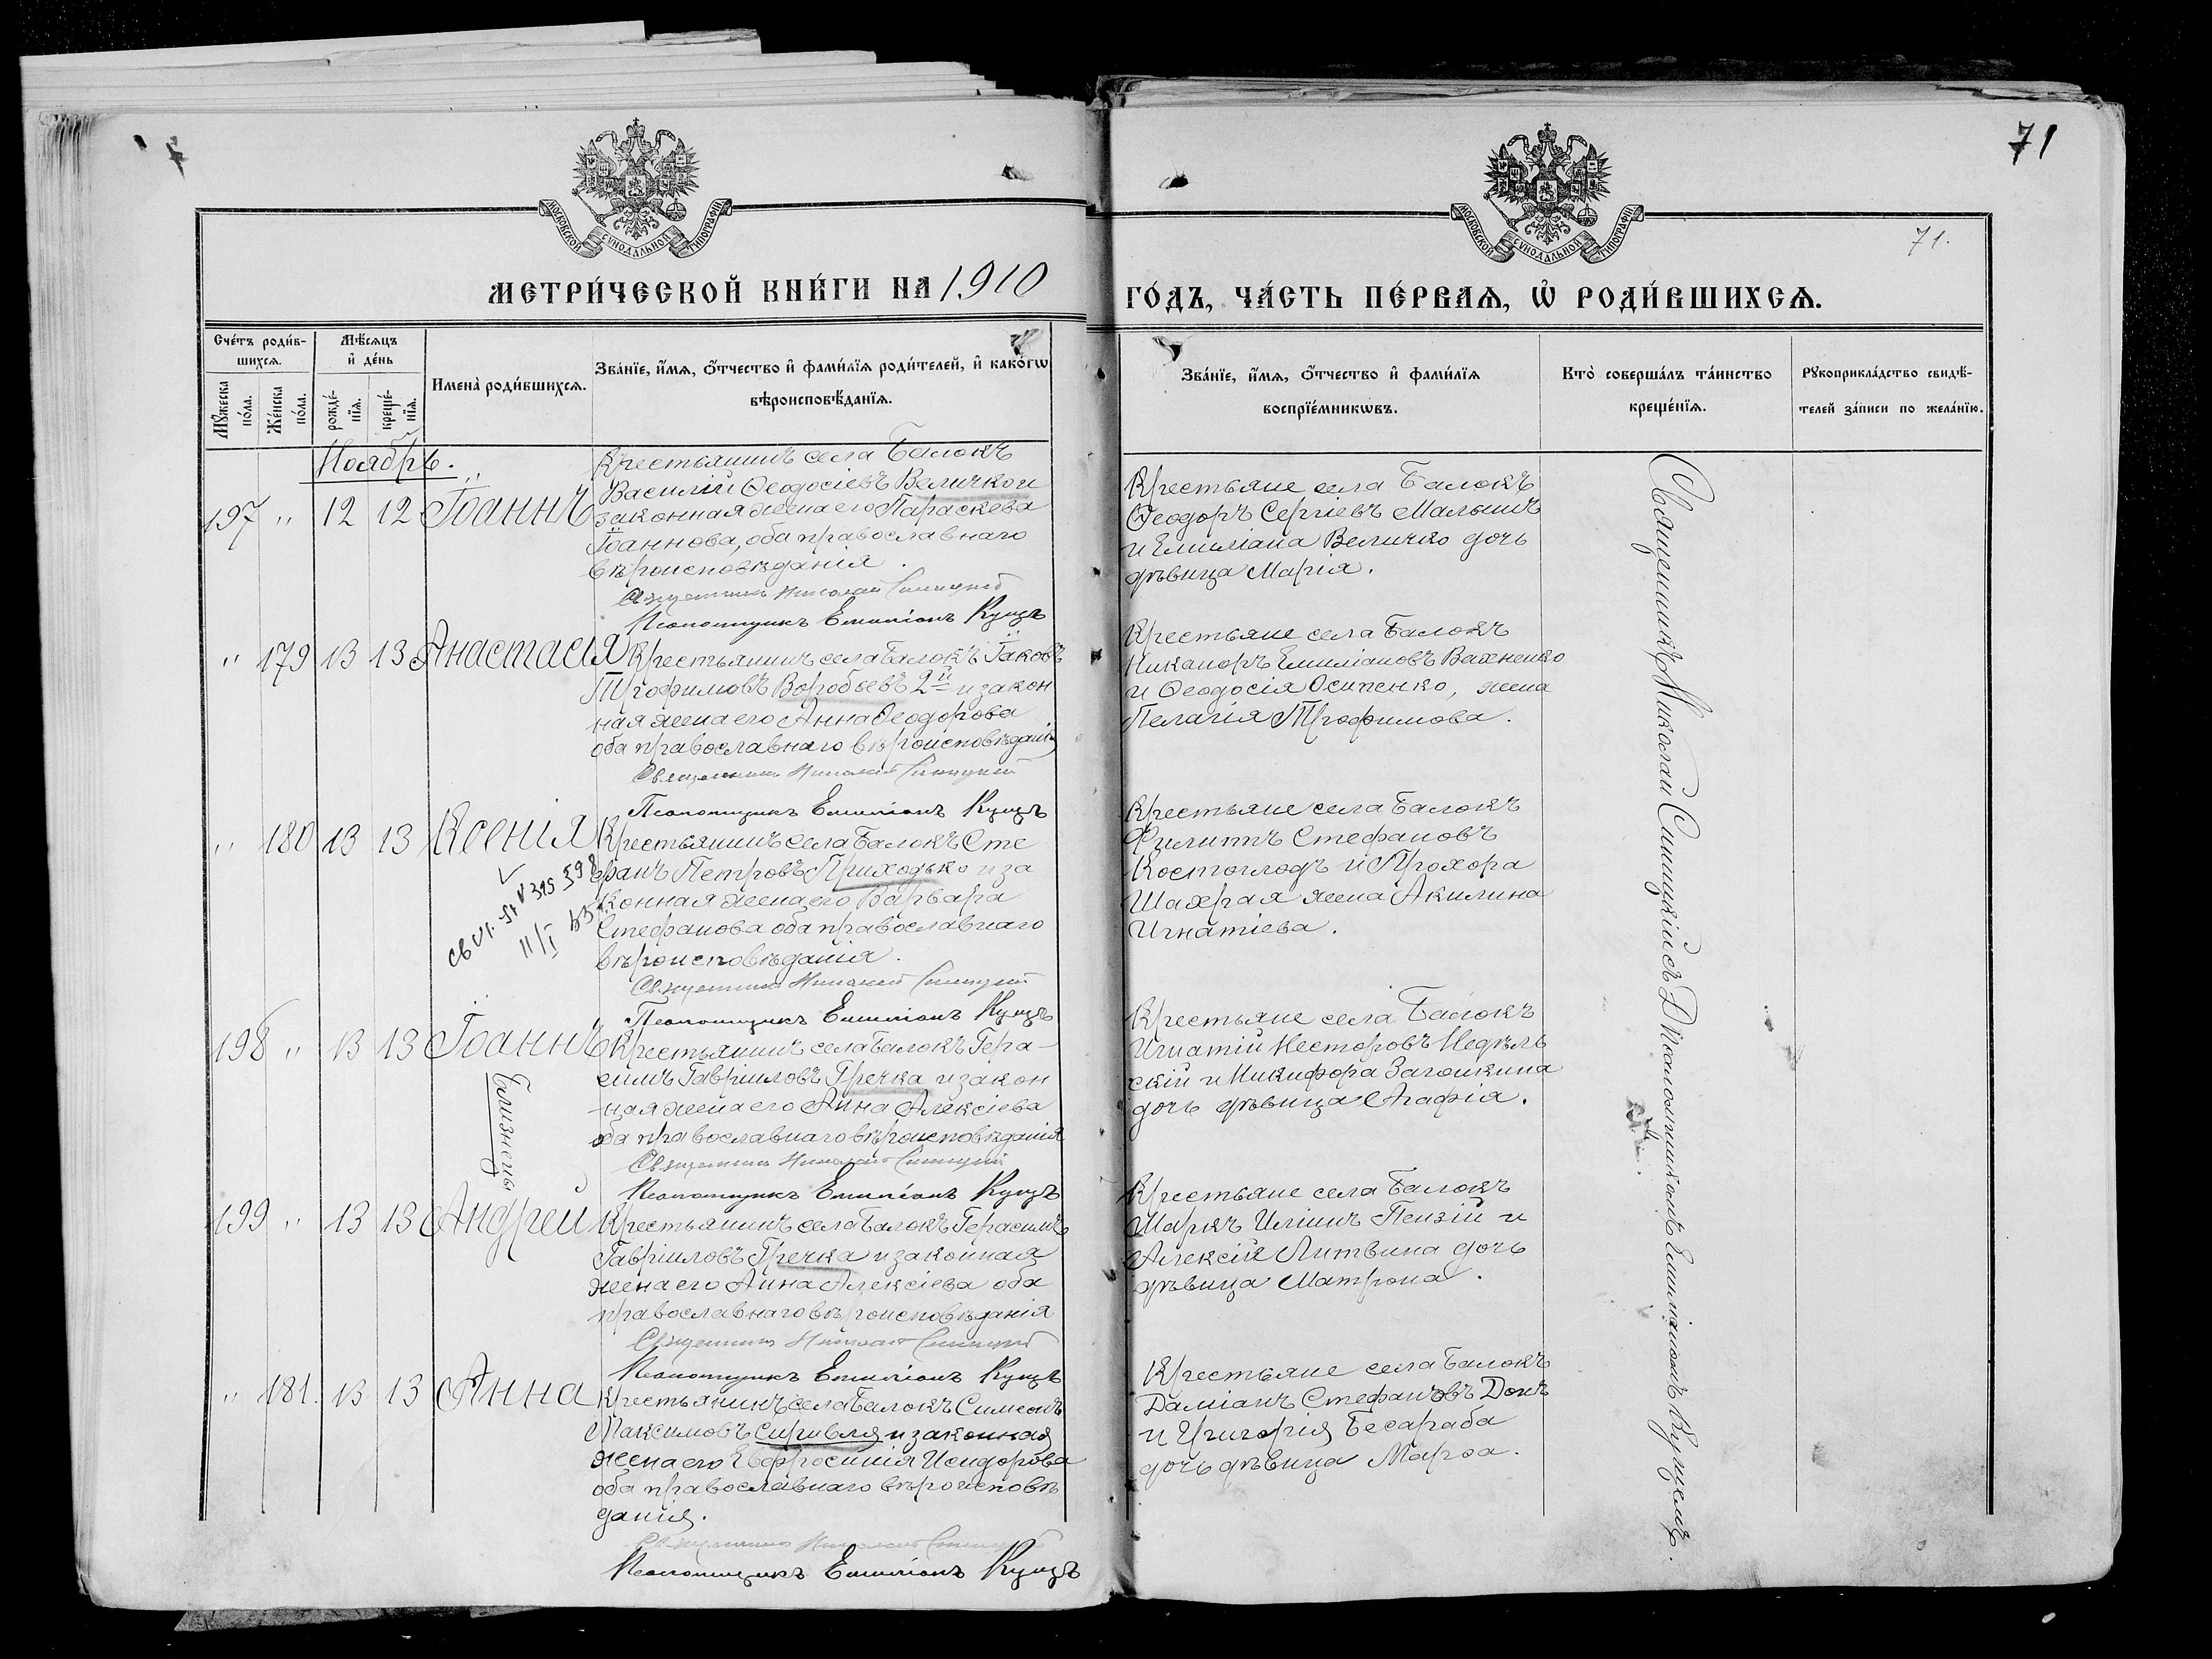 71
МОСКОВСКОЙ СѴНОДАЛЬНОЙ ТИПОГРАФІИ
МОСКОВСКОЙ СѴНОДАЛЬНОЙ ТИПОГРАФІИ
71.
МЕТРИ́ЧЕСКОЙ КНИ́ГИ НА 1910
ГО́ДЪ, ЧА́СТЬ ПЕ́РВАѦ, Ѡ҆ РОДИ́ВШИХСѦ.
Сче́тъ роди́в-
шихсѧ.
Мꙋ́жеска по́ла.
Же́нска по́ла.
Мѣ́сѧцъ
и҆ де́нь
рожде́-
нїѧ.
креще́-
нїѧ.
Имена̀ роди́вшихсѧ.
Зва́нїе, и҆́мѧ, ѻ҆́тчество и҆ фами́лїѧ роди́телей, и҆ како́гѡ
вѣроисповѣ́данїѧ.
Зва́нїе, и҆́мѧ, ѻ҆́тчество и҆ фами́лїѧ
воспрїе́мникѡвъ.
Кто̀ соверша́лъ та́инство
креще́нїѧ.
Рꙋкоприкла́дство свидѣ́-
телей за́писи по жела́нїю.
Ноябрь.
197 " 12 12 Іоаннъ
Крестьянинъ села Балокъ
Василій Ѳеодосіевъ Величко и
законная жена его Параскева
Іоаннова, оба православнаго
вѣроисповѣданія.
Священникъ Николай Синицкій
Псаломщикъ Емиліанъ Кущъ
Крестьяне села Балокъ
Ѳеодоръ Сергіевъ Малышъ
и Емиліана Величко дочь
дѣвица Марія.
" 179 13 13 Анастасія
Крестьянинъ села Балокъ Іаковъ
Трофимовъ Воробьевъ 2й и закон
ная жена его Анна Ѳеодорова
оба православнаго вѣроисповѣданія
Священникъ Николай Синицкій
Псаломщикъ Емиліанъ Кущъ
Крестьяне села Балокъ
Никаноръ Емиліановъ Вахненко
и Ѳеодосія Осипенко, жена
Пелагія Трофимова.
" 180 13 13 Ксенія
11/I
Крестьянинъ села Балокъ Сте
фанъ Петровъ Приходько и за
конная жена его Варвара
Стефанова оба православнаго
вѣроисповѣданія.
Священникъ Николай Синицкій
Псаломщикъ Емиліанъ Кущъ
Крестьяне села Балокъ
Филиппъ Стефановъ
Костоглодъ и Прохора
Шахрая жена Акилина
Игнатіева.
198 " 13 13 Іоаннъ
Близнецы
Крестьянинъ села Балокъ Гера-
симъ Гавріиловъ Гречка и закон
ная жена его Анна Алексіева
оба православнаго вѣроисповѣданія
Священникъ Николай Синицкій
Псаломщикъ Емиліанъ Кущъ
Крестьяне села Балокъ
Игнатій Несторовъ Недѣль
скій и Никифора Загошкина
дочь дѣвица Агафія.
199 " 13 13 Андрей
Крестьянинъ села Балокъ Герасимъ
Гавріиловъ Гречка и законная
жена его Анна Алексіева оба
православнаго вѣроисповѣданія
Священникъ Николай Синицкій
Псаломщикъ Емиліанъ Кущъ
Крестьяне села Балокъ
Маркъ Иліинъ Пензій и
Алексія Литвина дочь
дѣвица Матрона.
" 181. 13 13 Анна
Крестьянинъ села Балокъ Симеонъ
Максимовъ и законная
жена его Евфросинія Исидорова
оба православнаго вѣроисповѣ
данія.
Священникъ Николай Синицкій
Псаломщикъ Емиліанъ Кущъ
Крестьяне села Балокъ
Даміанъ Стефановъ Донъ
и Григорія Бесараба
дочь дѣвица Марѳа.
Священникъ Николай Синицкій съ Псаломщикомъ Емиліаномъ Кущемъ.